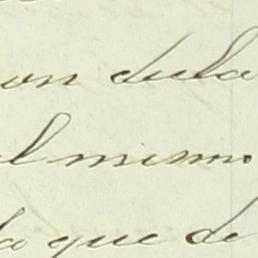 on dula
el mismo
la que de